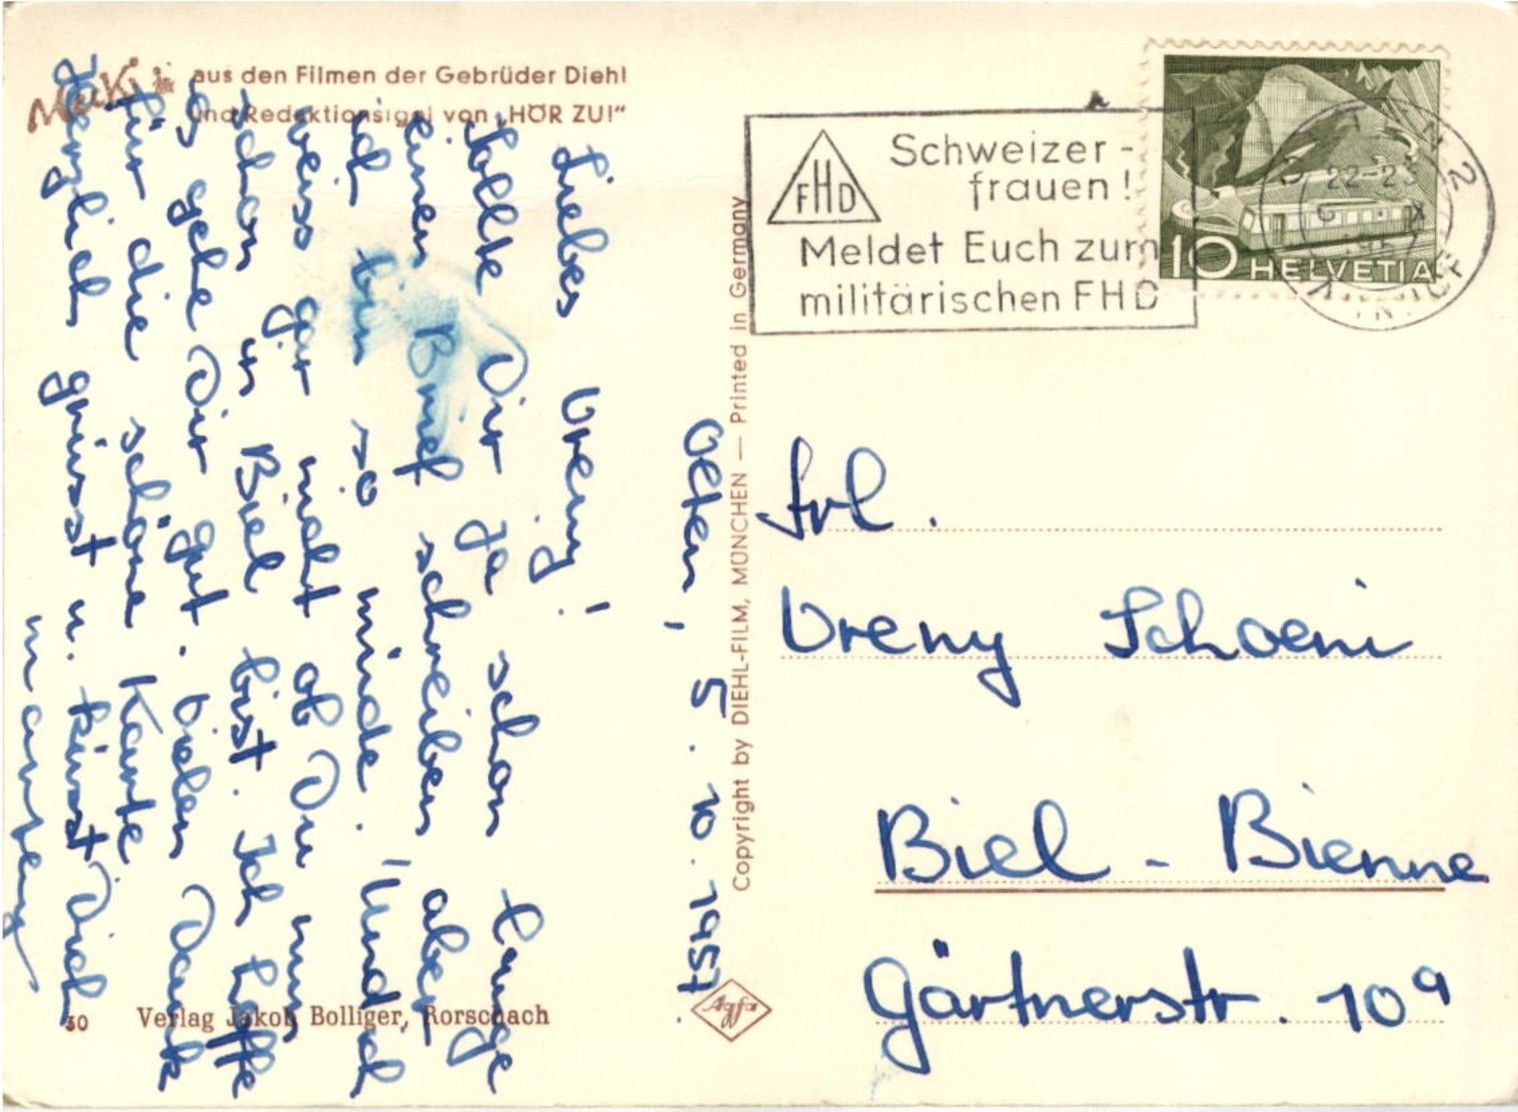 Mecki
aus den Filmen der Gebrüder Diehl
und Redaktionsigel von „HÖR ZU!“
Olten, 5. 10. 1957.
Liebes Vreny!
Sollte Dir ja schon lange
einen Brief schreiben aber
ich bin so müde. Und ich
weiss gar nicht ob Du nun
schon in Biel bist. Ich hoffe
es gehe Dir gut. Vielen Dank
für die schöne Karte
Herzlich grüsst u. küsst Dich
30 Verlag Jakob Bolliger, Rorschach
Copyright by DIEHL-FILM, MÜNCHEN — Printed in Germany
Agfa
FHD
Schweizer-
frauen!
Meldet Euch zum
militärischen FHD
10 HELVETIA
22-23
Frl.
Vreny Schoeni
Biel - Bienne
Gärtnerstr. 10a